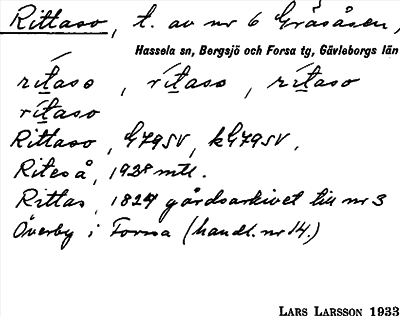 Rittaso, t. av nr 6 Gräsåsen,
Hassela sn, Bergsjö och Forsa tg, Gävleborgs län
rítaso, rítaso, rítaso
rítaso
Rittaso, G79SV, kG79SV.
Riteså, 1928 mtl.
Rittas, 1827 gårdsarkivet till nr 3
Överby i Forssa (handl. nr 14.)
LARS LARSSON 1933